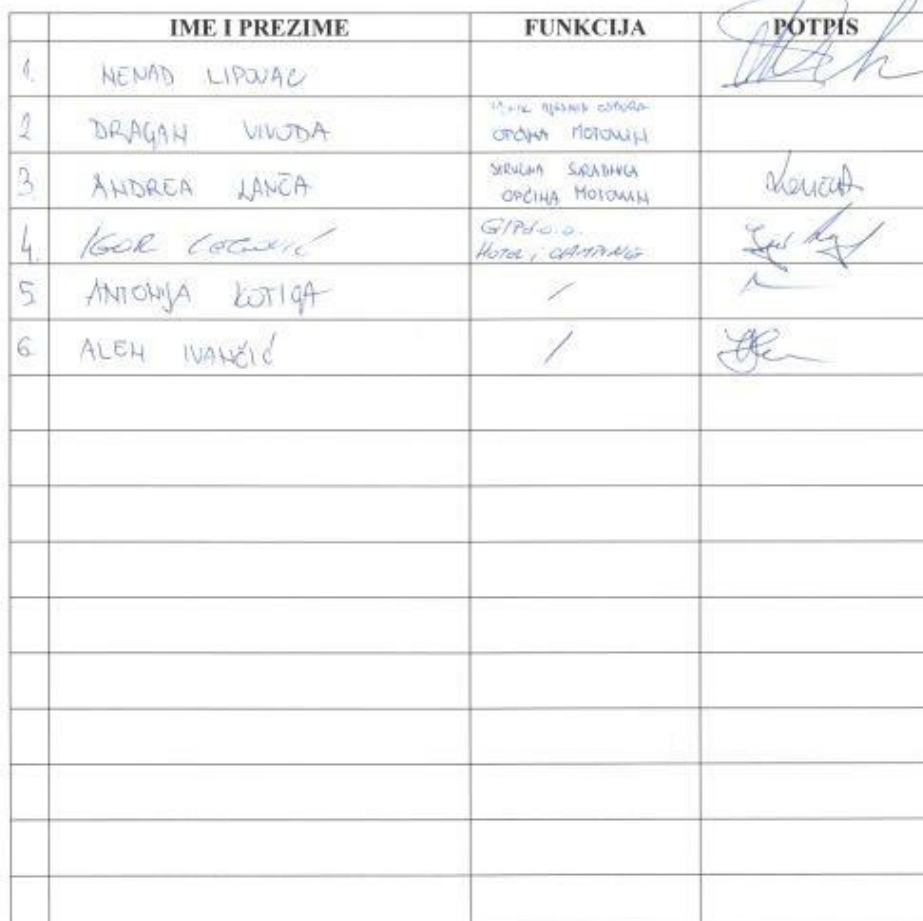 IME I PREZIME FUNKCIJA POTPIS
1. NENAD LIPOVAC
2 DRAGAN VIVODA
OPĆINA MOTOVUN
3. ANDREA LANČA
STRUČNA SURADNICA
OPĆINA MOTOVUN
4. IGOR
GIP d.o.o.
HOTEL I CAMPING
5 ANTONIJA KOTIGA /
6. ALEN IVANČIĆ /